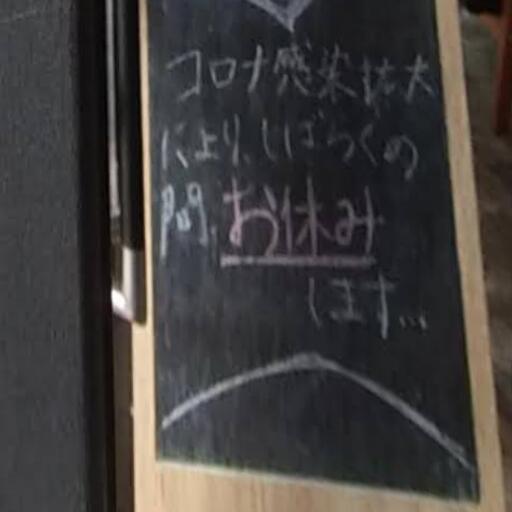 コロナ感染拡大
により、しばらくの
間、お休み
します...